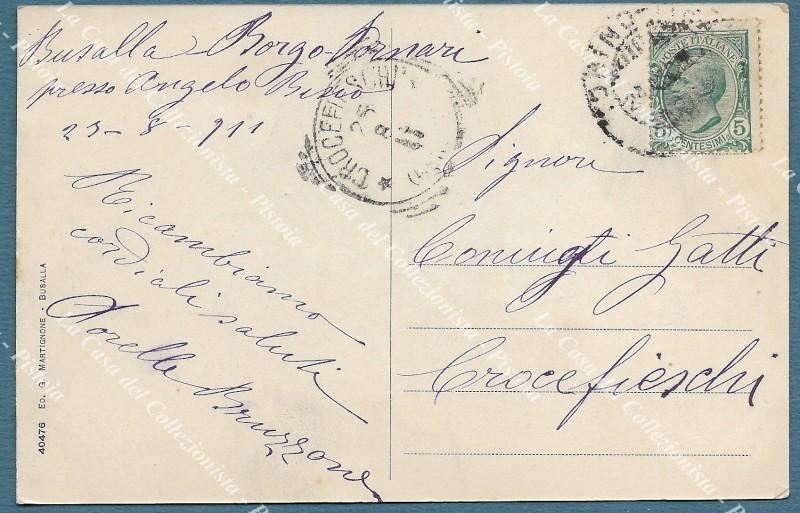 Busalla Borgo-Fornari
presso Angelo Bisio
23-8-911
Ricambiamo
cordiali saluti
Sorelle Bruzzone
Signori
Coniugi Gatti
Crocefieschi
CROCEFIESCHI
25
8
11
POSTE ITALIANE
5 CENTESIMI 5
40476 ED. G. MARTIGNONE - BUSALLA
La Casa del Collezionista - Pistoia